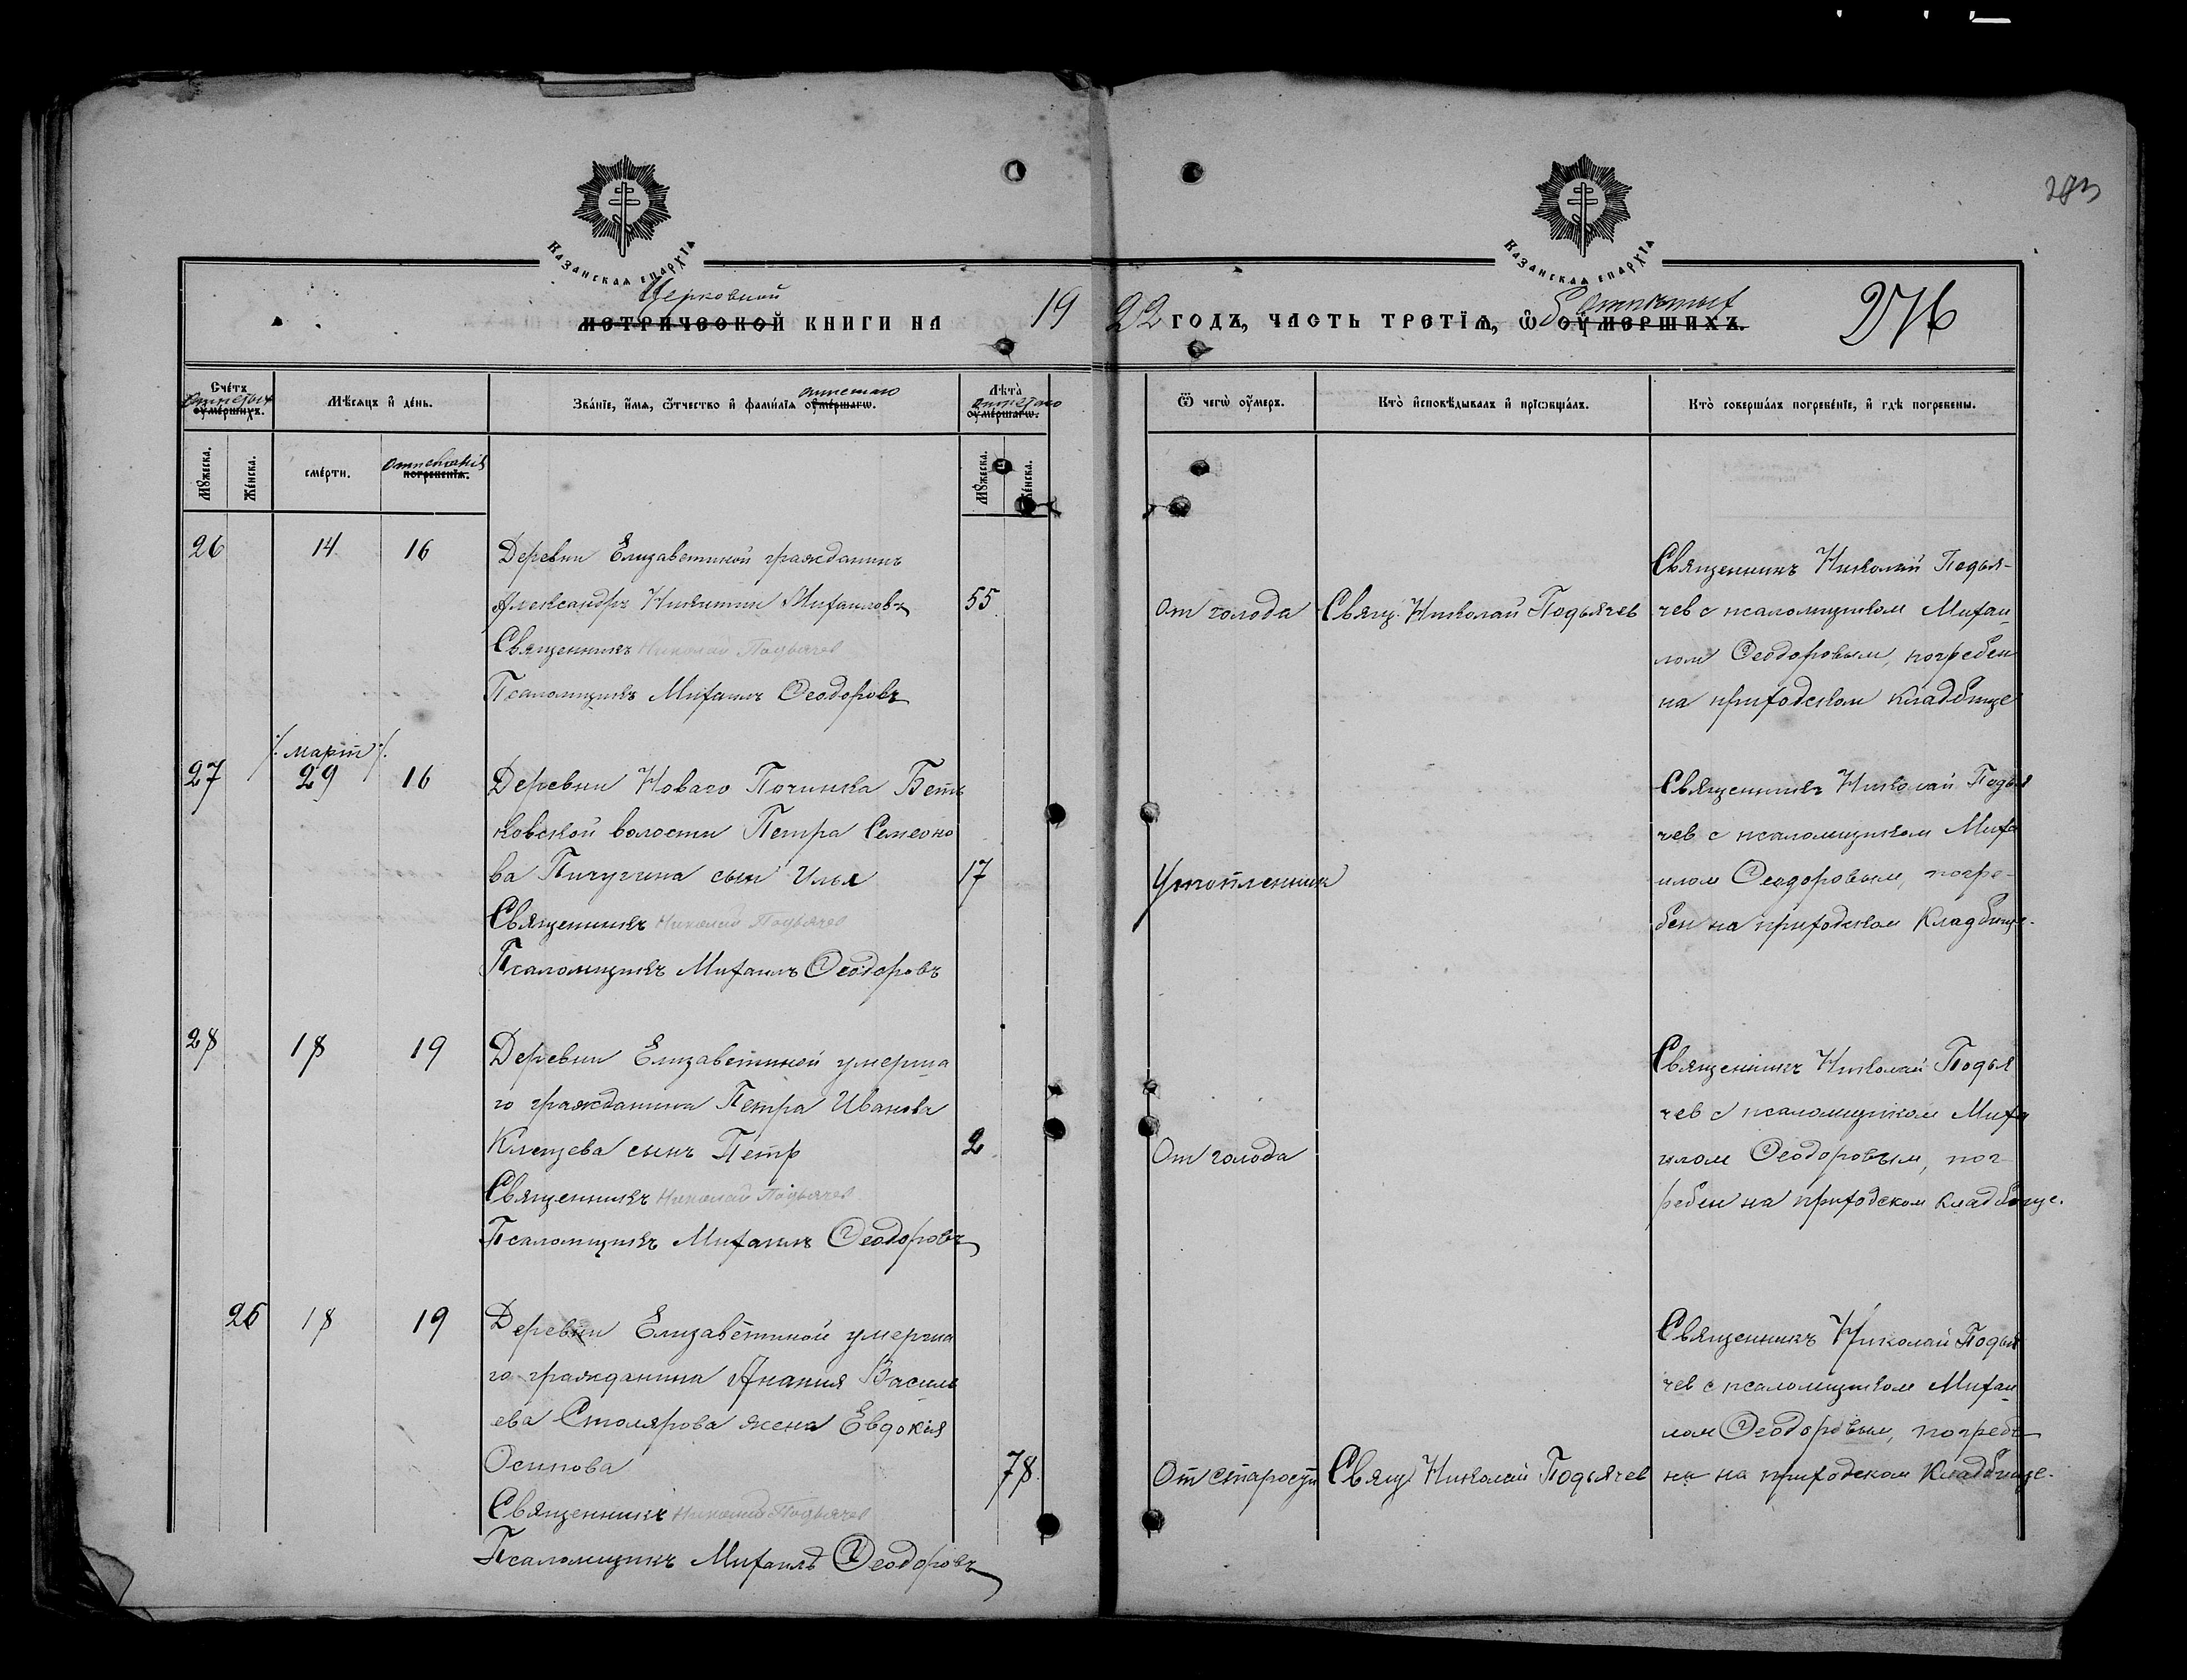 283
КАЗАНСКАЯ ЕПАРХІЯ
КАЗАНСКАЯ ЕПАРХІЯ
Церковной
МЕТРИЧЕСКОЙ КНИГИ НА 19
22 ГОДЪ, ЧАСТЬ ТРЕТІѦ, Ѡ ОУМЕРШИХЪ.
отпетых
276
Счéтъ
отпетых
оумéршихъ.
Мѣсяцъ и дéнь.
отпетаго
Звáніе, имя, ѻтчество и фамилія оумéршагѡ.
Лѣта
отпетаго
оумéршагѡ.
Ѿ чегѡ оумеръ.
Ктò исповѣдывалъ и пріѡбщáлъ.
Ктò совершáлъ погребéніе, и гдѣ погребены.
Мужеска.
Жéнска.
смéрти.
отпевания
погребенія.
Мужеска.
Жéнска.
26 14 16
Деревни Елизаветиной гражданинъ
Александръ Никитин Михаиловъ 55
Священникъ Николай Подьячев
Псаломщикъ Михаилъ Ѳеодоровъ
От голода
Свящ. Николай Подьячев
Священникъ Николай Подья-
чев с псаломщиком Михаи
лом Ѳеодоровым, погребен
на приходском кладбище
27 /. март /. 29 16
Деревни Новаго Починка Бетъ
ковской волости Петра Семено
ва Пичугина сын Илья 17
Священникъ Николай Подьячев
Псаломщикъ Михаилъ Ѳеодоровъ
Утопленник
Священникъ Николай Подья
чев с псаломщиком Миха
илом Ѳеодоровым, погре-
бен на приходском кладбище.
28 18 19
Деревни Елизаветиной умерша
го гражданина Петра Иванова
Клещева сынъ Петр 2
Священникъ Николай Подьячев
Псаломщикъ Михаилъ Ѳеодоровъ
От голода
Священникъ Николай Подья
чев с псаломщиком Миха
илом Ѳеодоровым, пог-
ребен на приходском кладбище.
26 18 19
Деревни Елизаветиной умерша
го гражданина Анания Василь
ева Столярова жена Евдокія
Осипова 78.
Священникъ Николай Подьячев
Псаломщикъ Михаилъ Ѳеодоровъ
От старости
Свящ Николай Подьячев
Священникъ Николай Подья
чев с псаломщиком Михаи
лом Ѳеодоровым, погребе
на на приходском кладбище.